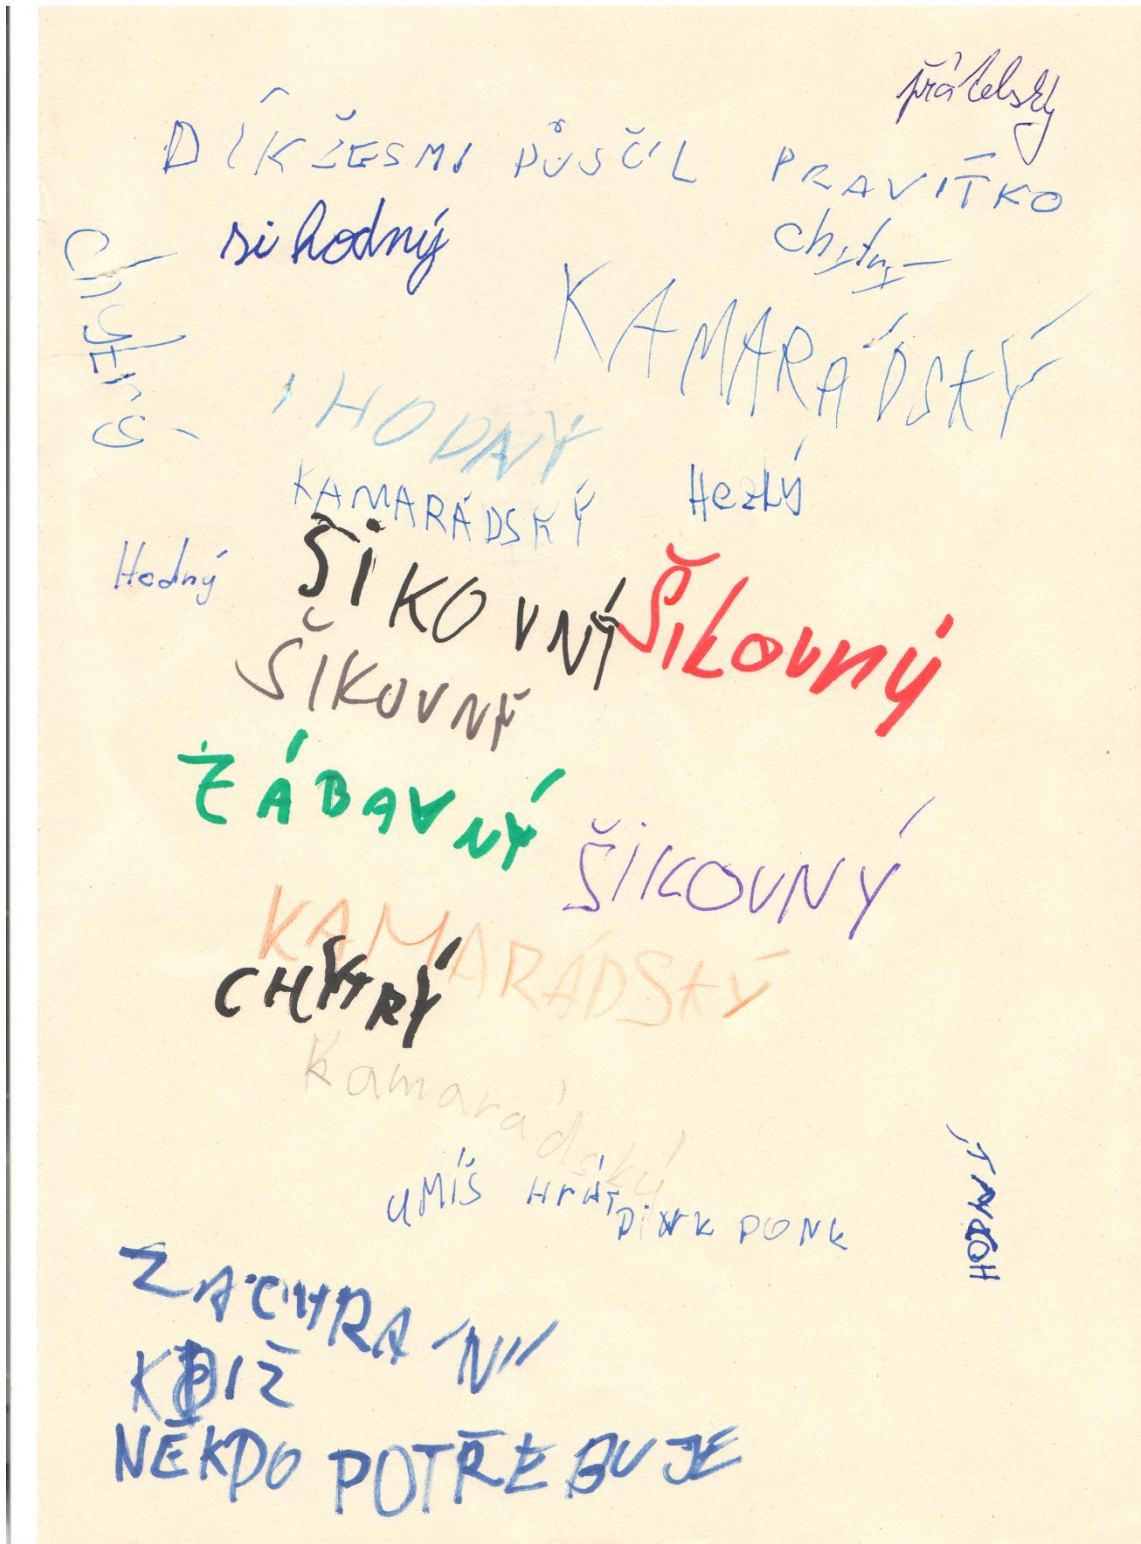 přátelský
DÍKŽESMI PŮSČIL PRAVÍTKO
si hodný
chytrý
chytrý
KAMARÁDSKÝ
HODNÝ
KAMARÁDSKÝ
Hezký
Hodný
ŠIKOVNÝ
ŠIKOVNÝ
ŠIKOVNÝ
ZÁBAVNÝ
ŠIKOVNÝ
KAMARÁDSKÝ
CHYTRÝ
Kamarádský
UMÍŠ HRÁT
PINK PONK
HODNÝ
ZACHRANÍ
KDIŽ
NĚKDO POTŘEBUJE